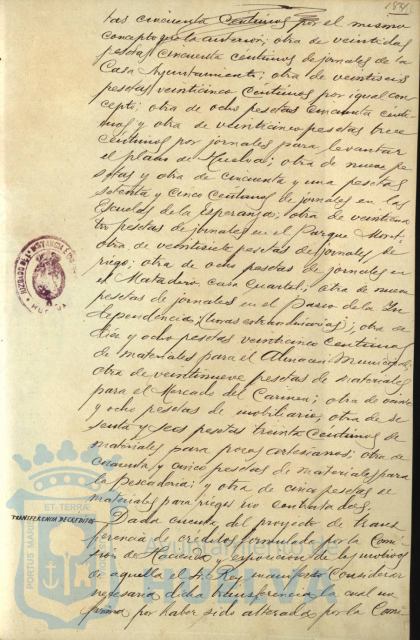 184
tas cincuenta centimos por el mismo
concepto que la anterior; otra de veintidos
pesetas cincuenta centimos de jornales de la
Casa Ayuntamiento; otra de veintiseis
pesetas veinticinco centimos por igual con-
cepto; otra de ocho pesetas cincuenta centi-
mos y otra de veinticinco pesetas trece
centimos por jornales para levantar
el plano de Huelva; otra de nueve pe-
setas y otra de cincuenta y una pesetas
setenta y cinco centimos de jornales en las
Escuelas de la Esperanza; otra de
tres pesetas de jornales en el Parque Mont;
otra de veintisiete pesetas de jornales de
riego; otra de ocho pesetas de jornales en
el Matadero, casa Cuartel; otra de nueve
pesetas de jornales en el Paseo de la In-
dependencia (horas extraordinarias); otra de
diez y ocho pesetas veinticinco centimos
de materiales para el Almacen Municipal;
otra de veintinueve pesetas de materiales
para el Mercado del Carmen; otra de
y ocho pesetas de mobiliario; otra de se-
senta y seis pesetas treinta centimos de
materiales para pozos artesianos; otra de
cuarenta y cinco pesetas de materiales para
la Pescaderia; y otra de cinco pesetas de
materiales para riegos no contratados.
TRANSFERENCIA DE CREDITOS
Dada cuenta del proyecto de trans-
ferencia de creditos formulado por la Comi-
sion de Hacienda y exposicion de los motivos
de aquella el Sr. Rey manifesto considerar
necesaria dicha transferencia la cual no
firma por haber sido alterada por la Comi-
PORTUS MARIS ET TERRAE
Ayuntamiento de
HUELVA